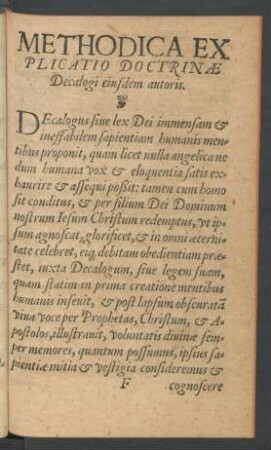 METHODICA EX
PLICATIO DOCTRINÆ
Decalogi eiusdem autoris.
DEcalogus siue lex Dei immensam &
ineffabilem sapientiam humanis men-
tibus proponit, quam licet nulla angelica ne
dum humana vox & eloquentia satis ex-
haurire & assequi possit: tamen cum homo
sit conditus, & per filium Dei Dominum
nostrum Iesum Christum redemptus, vt ip-
sum agnoscat, glorificet, & in omni æterni-
tate celebret, eiq; debitam obedientiam præ-
stet, iuxta Decalogum, siue legem suam,
quam statim in prima creatione mentibus
humanis inseuit, & post lapsum obscuratã
viua voce per Prophetas, Christum, & A-
postolos, illustrauit, voluntatis diuinæ sem-
per memores, quantum possumus, ipsius sa-
pientiæ initia & vestigia consideremus &
F cognoscere